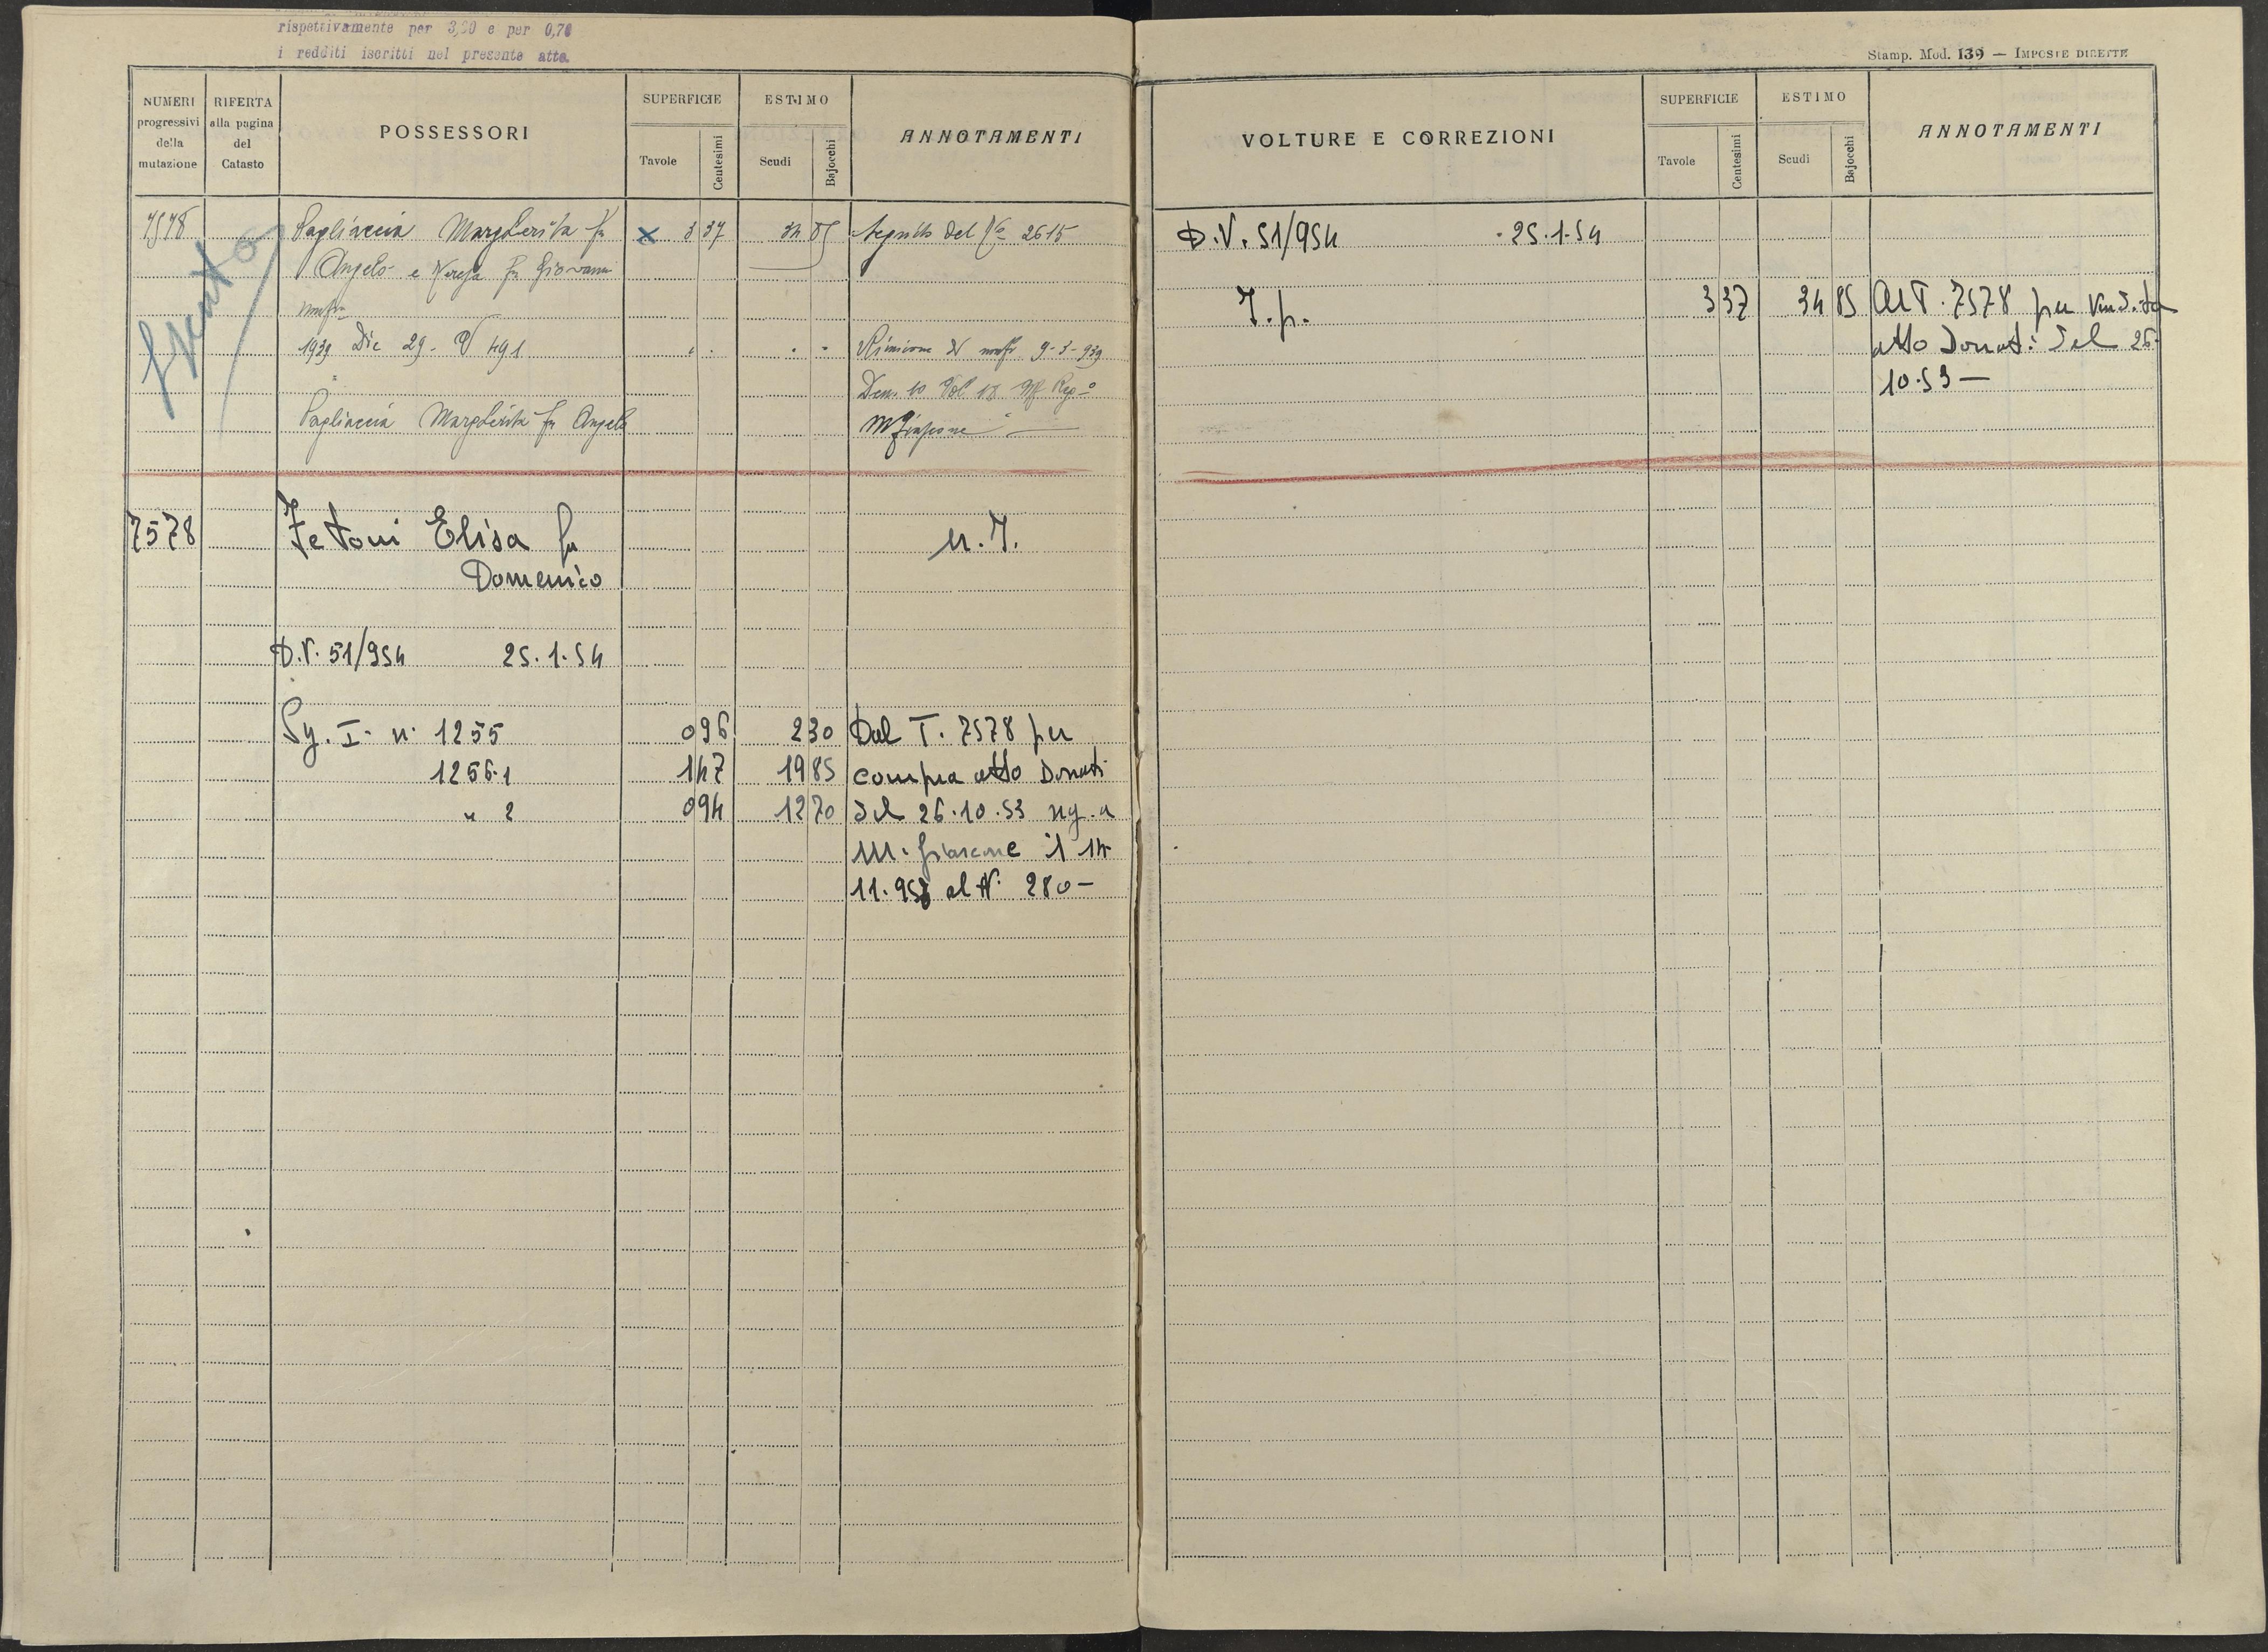 rispettivamente per 3,20 e per 0,70
i redditi iscritti nel presente atto.
NUMERI progressivi della mutazione
RIFERTA alla pagina del Catasto
POSSESSORI
SUPERFICIE
Tavole
Centesimi
ESTIMO
Scudi
Bajocchi
ANNOTAMENTI
7578
Spento
Pagliaccia Margherita fu
Angelo e Teresa fu Giovanni
X 3 37
34 85
Seguito del 2615
1939 Dic 29 - V 491
Riunione usufr 9-3-939
Den. 10 Vol. 18
M Giascone
Pagliaccia Margherita fu Angelo
7578
Fetoni Elisa fu
Domenico
n. I.
D.V. 51/954 25.1.54
Sy. I. n. 1255 0 96 2 30 Dal T. 7578 per
1256.1 1 47 19 85 compra atto Donati
" 2 0 94 12 70 del 26.10.53 reg. a
M. Giascone il 14
11.953 al N. 280 -
Stamp. Mod. 139 — IMPOSTE DIRETTE
VOLTURE E CORREZIONI
SUPERFICIE
Tavole
Centesimi
ESTIMO
Scudi
Bajocchi
ANNOTAMENTI
D.V. 51/954 25.1.54
I.p. 3 37 34 85 Al T. 7578 per vendita
atto Donati del 26.
10.53 —